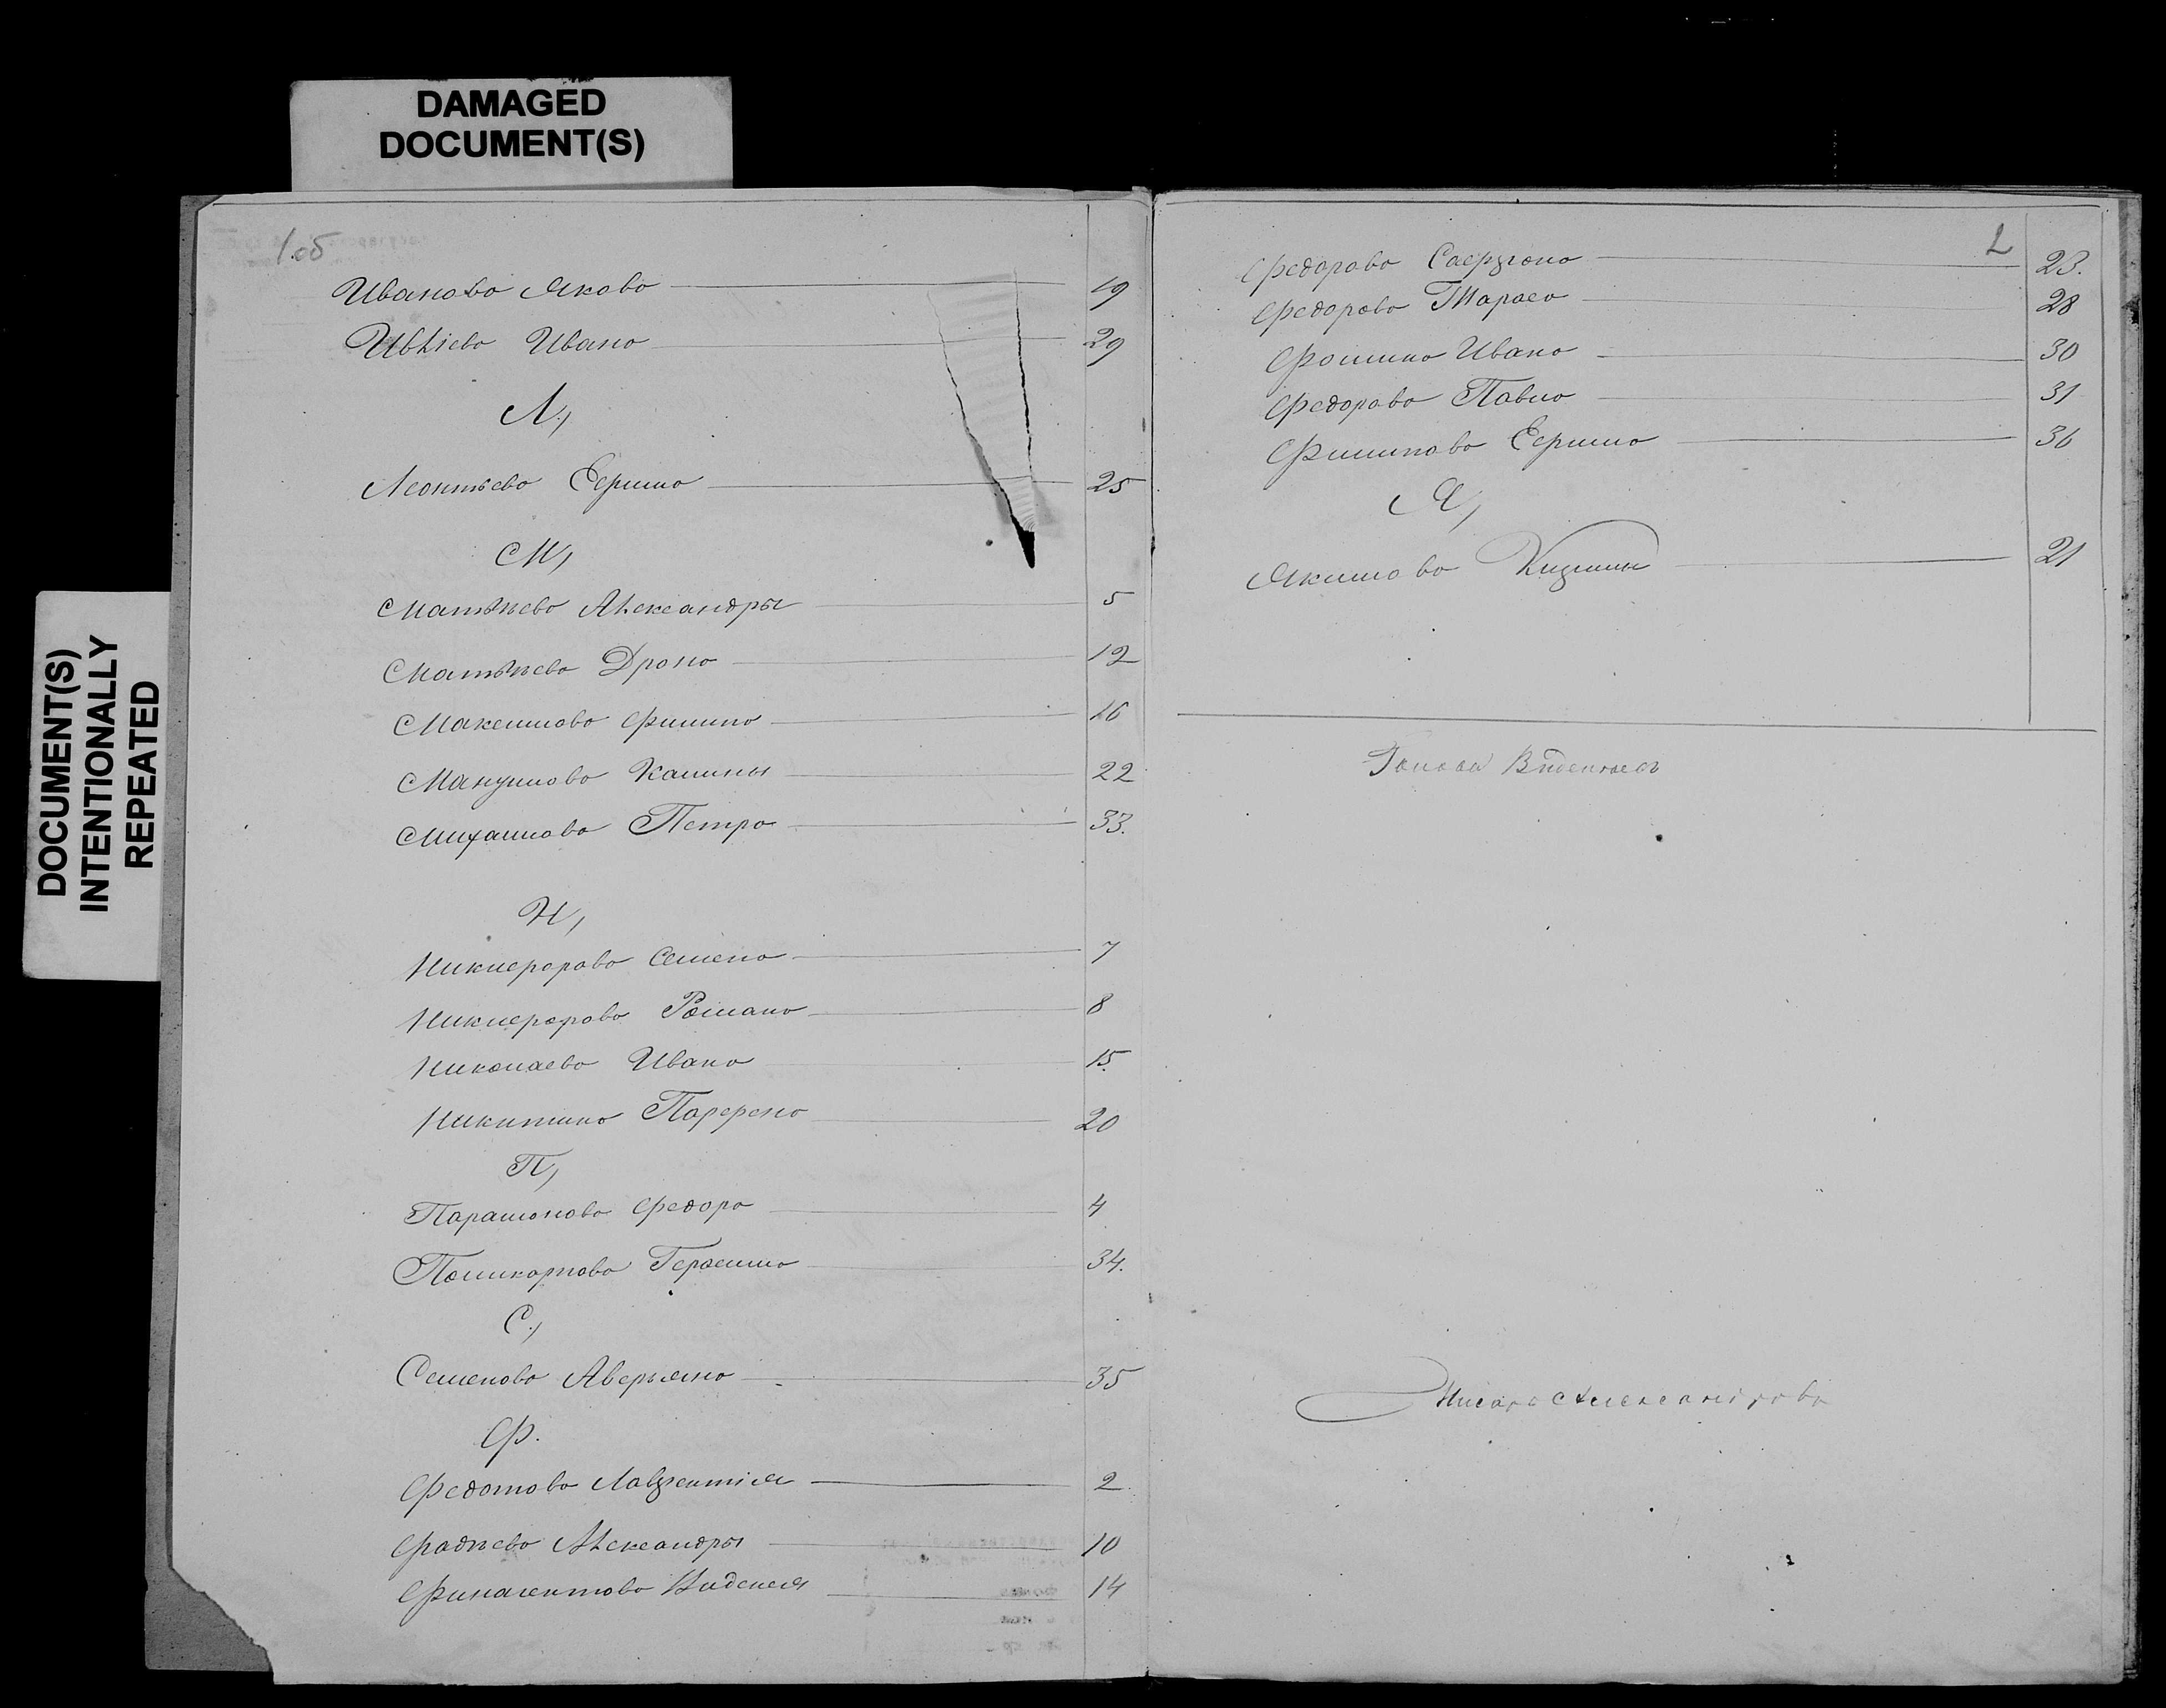 DAMAGED
DOCUMENT(S)
DOCUMENT(S)
INTENTIONALLY
REPEATED
1об
Ивановъ Яковъ 19
Ивліевъ Иванъ 29
Л,
Леонтьевъ Ефимъ 25
М,
Матвѣевъ Александръ 5
Матвѣевъ Дронъ 12
Максимовъ Филипъ 16
Мануиловъ Калины 22
Михаиловъ Петръ 33.
Н,
Никифоровъ Семенъ 7
Никифоровъ Романъ 8
Николаевъ Иванъ 15
Никитинъ Парфенъ 20
П,
Парамоновъ Федоръ 4
Поликарповъ Герасимъ 34.
С,
Семеновъ Аверьянъ 35
Ф.
Федотовъ Лаврентія 2
Фадѣевъ Александръ 10
14
2
Федоровъ 23.
Федоровъ Тарасъ 28
Фоминъ Иванъ 30
Федоровъ Павлъ 31
Филиповъ Ефимъ 36
Я,
Якимовъ Кузьмы 21
Писарь Александровъ